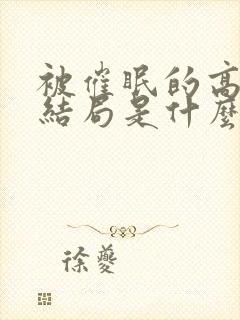 被催眠的高
結局是什麼
徐夔